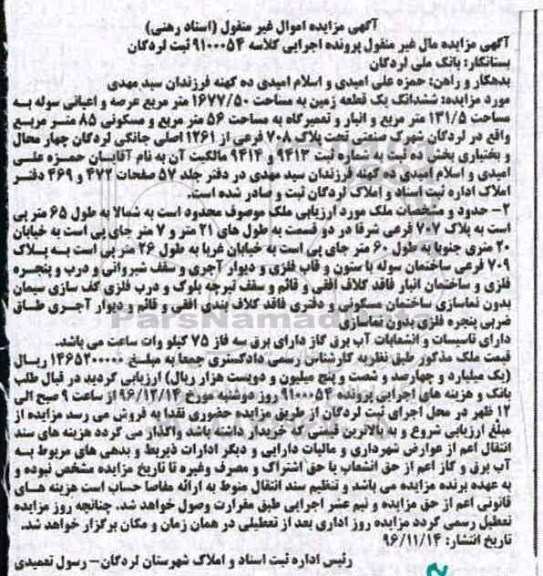 آگهی مزایده اموال غیر منقول (اسناد رهنی)
آگهی مزایده مال غیر منقول پرونده اجرایی کلاسه ۹۱۰۰۰۵۴ ثبت لردگان
بستانکار: بانک ملی لردگان
بدهکار و راهن: حمزه علی امیدی و اسلام امیدی ده کهنه فرزندان سید مهدی
مورد مزایده: ششدانگ یک قطعه زمین به مساحت ۱۶۷۷/۵۰ متر مربع عرصه و اعیانی سوله به
مساحت ۱۳۱/۵ متر مربع و انبار و تعمیرگاه به مساحت ۵۶ متر مربع و مسکونی ۸۵ متر مربع
واقع در لردگان شهرک صنعتی تحت پلاک ۷۰۸ فرعی از ۱۲۶۱ اصلی جانکی لردگان چهار محال
و بختیاری بخش ده ثبت به شماره ثبت ۹۴۱۳ و ۹۴۱۴ مالکیت آن به نام آقایان حمزه علی
امیدی و اسلام امیدی ده کهنه فرزندان سید مهدی در دفتر جلد ۵۷ صفحات ۴۷۲ و ۴۶۹ دفتر
املاک اداره ثبت اسناد و املاک لردگان ثبت و صادر شده است.
۲- حدود و مشخصات ملک مورد ارزیابی ملک موصوف محدود است به شمالا به طول ۶۵ متر پی
است به پلاک ۷۰۷ فرعی شرقا در دو قسمت به طول های ۲۱ متر و ۷ متر جای پی است به خیابان
۲۰ متری جنوبا به طول ۶۰ متر جای پی است به خیابان غربا به طول ۲۶ متر پی است به پلاک
۷۰۹ فرعی ساختمان سوله با ستون و قاب فلزی و دیوار آجری و سقف شیروانی و درب و پنجره
فلزی و ساختمان انبار فاقد کلاف افقی و قائم و سقف تیرچه بلوک و درب فلزی کف سازی سیمان
بدون نماسازی ساختمان مسکونی و دفتری فاقد کلاف بندی افقی و قائم و دیوار آجری طاق
ضربی پنجره فلزی بدون نماسازی
دارای تاسیسات و انشعابات آب برق گاز دارای برق سه فاز ۷۵ کیلو وات ساعت می باشد.
قیمت ملک مذکور طبق نظریه کارشناس رسمی دادگستری جمعا به مبلغ ۱۴۶۵۲۰۰۰۰۰ ریال
(یک میلیارد و چهارصد و شصت و پنج میلیون و دویست هزار ریال) ارزیابی گردید در قبال طلب
بانک و هزینه های اجرایی پرونده ۹۱۰۰۰۵۴ روز دوشنبه مورخ ۹۶/۱۲/۱۴ از ساعت ۹ صبح الی
۱۲ ظهر در محل اجرای ثبت لردگان از طریق مزایده حضوری نقدا به فروش می رسد مزایده از
مبلغ ارزیابی شروع و به بالاترین قیمتی که خریدار داشته باشد واگذار می گردد هزینه های سند
انتقال اعم از عوارض شهرداری و مالیات دارایی و دیگر ادارات ذیربط و بدهی های مربوط به
آب برق و گاز اعم از حق انشعاب یا حق اشتراک و مصرف وغیره تا تاریخ مزایده مشخص نبوده و
به عهده برنده مزایده می باشد و تنظیم سند انتقال منوط به ارائه مفاصا حساب است هزینه های
قانونی اعم از حق مزایده و نیم عشر اجرایی طبق مقررات وصول خواهد شد. چنانچه روز مزایده
تعطیل رسمی گردد مزایده روز اداری بعد از تعطیلی در همان زمان و مکان برگزار خواهد شد.
تاریخ انتشار: ۹۶/۱۱/۱۴
رئیس اداره ثبت اسناد و املاک شهرستان لردگان – رسول تعمیدی